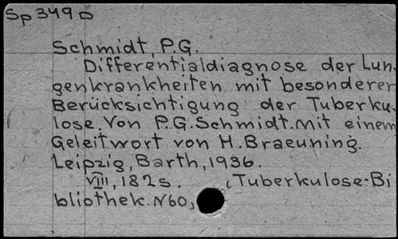 Sp 349 D
Schmidt, P.G.
Differentialdiagnose der Lun-
genkrankheiten mit besonderer
Berücksichtigung der Tuberku-
lose. Von P.G. Schmidt. Mit einem
Geleitwort von H. Braeuning.
Leipzig, Barth, 1936.
VIII, 182 s. (Tuberkulose-Bi
bliothek. N 60,